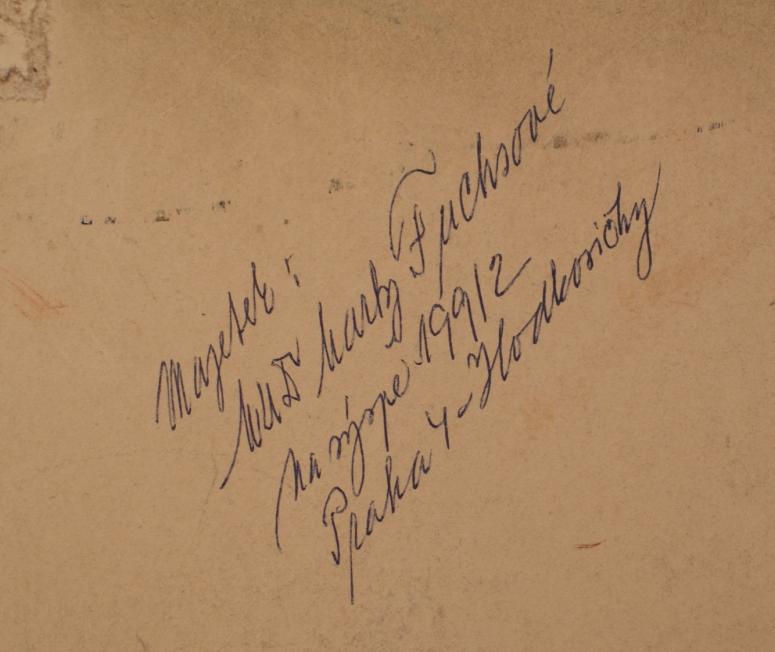 Majetek:
MUDr Marty Fuchsové
na výspě 199/2
Praha 4-Hodkovičky